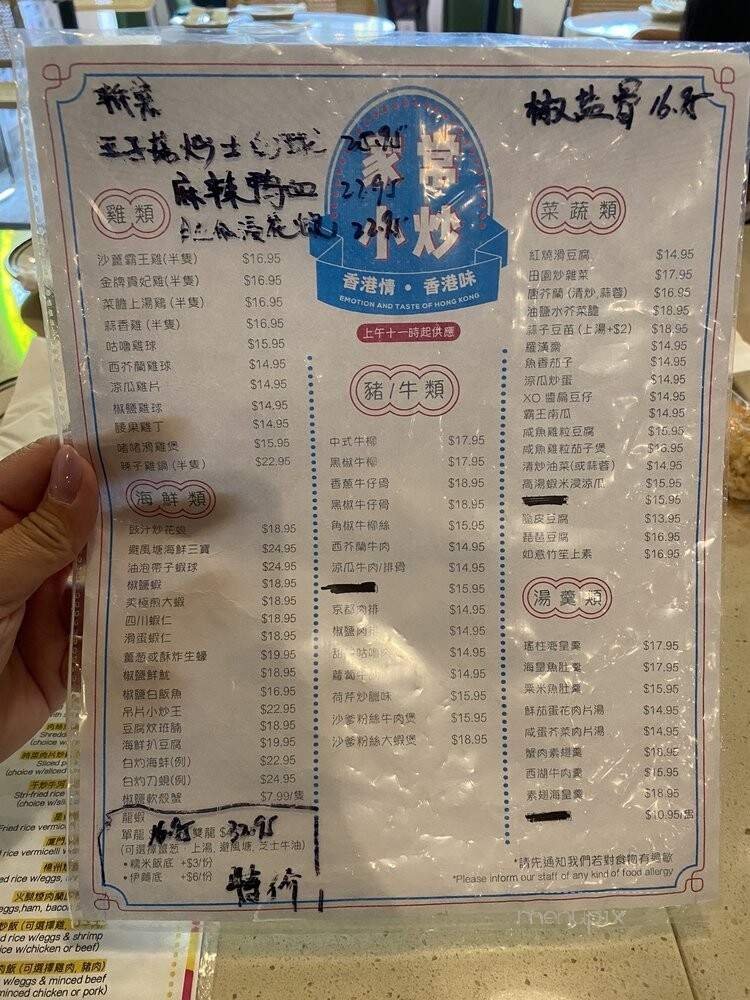 新菜
椒盐骨 16.95
25.95
麻辣鸭血 22.95
22.95
家常
小炒
香港情・香港味
EMOTION AND TASTE OF HONG KONG
上午十一時起供應
雞類
沙薑霸王雞(半隻) $16.95
金牌貴妃雞(半隻) $16.95
菜膽上湯鷄(半隻) $16.95
蒜香雞(半隻) $16.95
咕嚕雞球 $15.95
西芥蘭雞球 $14.95
涼瓜雞片 $14.95
椒鹽雞球 $14.95
腰果雞丁 $14.95
啫啫滑雞煲 $15.95
辣子雞鍋(半隻) $22.95
海鮮類
豉汁炒花蜆 $18.95
避風塘海鮮三寶 $24.95
油泡帶子蝦球 $24.95
椒鹽蝦 $18.95
美極煎大蝦 $18.95
四川蝦仁 $18.95
滑蛋蝦仁 $18.95
薑葱或酥炸生蠔 $19.95
椒鹽鮮魷 $18.95
椒鹽白飯魚 $16.95
吊片小炒王 $22.95
豆腐炆班腩 $18.95
海鮮扒豆腐 $19.95
白灼海蚌(例) $22.95
白灼刀蜆(例) $24.95
椒鹽軟殼蟹 $7.99/隻
龍蝦
單龍 16.95 雙龍 32.95
(可選擇薑葱,上湯,避風塘,芝士牛油)
•糯米飯底 +$3/份
•伊麵底 +$6/份
特价
豬/牛類
中式牛柳 $17.95
黑椒牛柳 $17.95
香蔥牛仔骨 $18.95
黑椒牛仔骨 $18.95
角椒牛柳絲 $15.95
西芥蘭牛肉 $14.95
涼瓜牛肉/排骨 $14.95
$15.95
京都肉排 $14.95
椒鹽肉排 $14.95
$14.95
蘿蔔牛腩 $14.95
荷芹炒臘味 $15.95
沙爹粉絲牛肉煲 $15.95
沙爹粉絲大蝦煲 $18.95
菜蔬類
紅燒滑豆腐 $14.95
田園炒雜菜 $17.95
唐芥蘭(清炒,蒜蓉) $16.95
油鹽水芥菜膽 $18.95
蒜子豆苗(上湯+$2) $18.95
羅漢齋 $14.95
魚香茄子 $14.95
涼瓜炒蛋 $14.95
XO醬扁豆仔 $14.95
霸王南瓜 $14.95
咸魚雞粒豆腐 $15.95
咸魚雞粒茄子煲 $15.95
清炒油菜(或蒜蓉) $14.95
高湯蝦米浸涼瓜 $15.95
$15.95
脆皮豆腐 $13.95
琵琶豆腐 $16.95
如意竹笙上素 $16.95
湯羹類
瑤柱海皇羹 $17.95
海皇魚肚羹 $17.95
粟米魚肚羹 $15.95
鮮茄蛋花肉片湯 $14.95
咸蛋芥菜肉片湯 $14.95
蟹肉素翅羹 $16.95
西湖牛肉羹 $15.95
素翅海皇羹 $18.95
$10.95/
*請先通知我們若對食物有過敏
*Please inform our staff of any kind of food allergy
menupix
Shredd
(choice w
Sliced p
(choice w/slice
Stri-fried rice
(choice w/sli
Fried rice vermic
ed rice vermicelli w
ed rice w/eggs,
eggs,ham, bacon
炒飯(可選擇雞,
d rice w/eggs & shrimp
ice w/chicken or beef)
肉飯(可選擇雞肉,豬肉)
w/eggs & minced beef
minced chicken or pork)